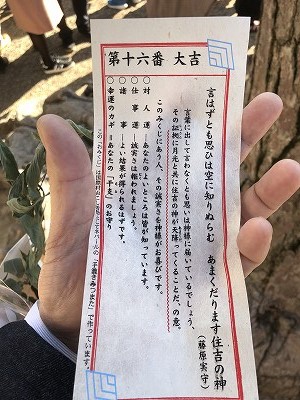 第十六番 大吉
言はずとも思ひは空に知りぬらむ あまくだります住吉の神
(藤原実守)
言葉に出して言わなくとも思いは神様に届いているでしょう、
その証拠に月光と共に住吉の神が天降ってくることだ、の意。
このみくじにあう人、その誠実さを神様がお喜びです。
○対人運―あなたのよいところは皆が知っています。
○仕事運―誠実さは報われましょう。
○諸事―よい結果が得られるはずです。
○幸運のカギ―あなたの「干支」のお守り